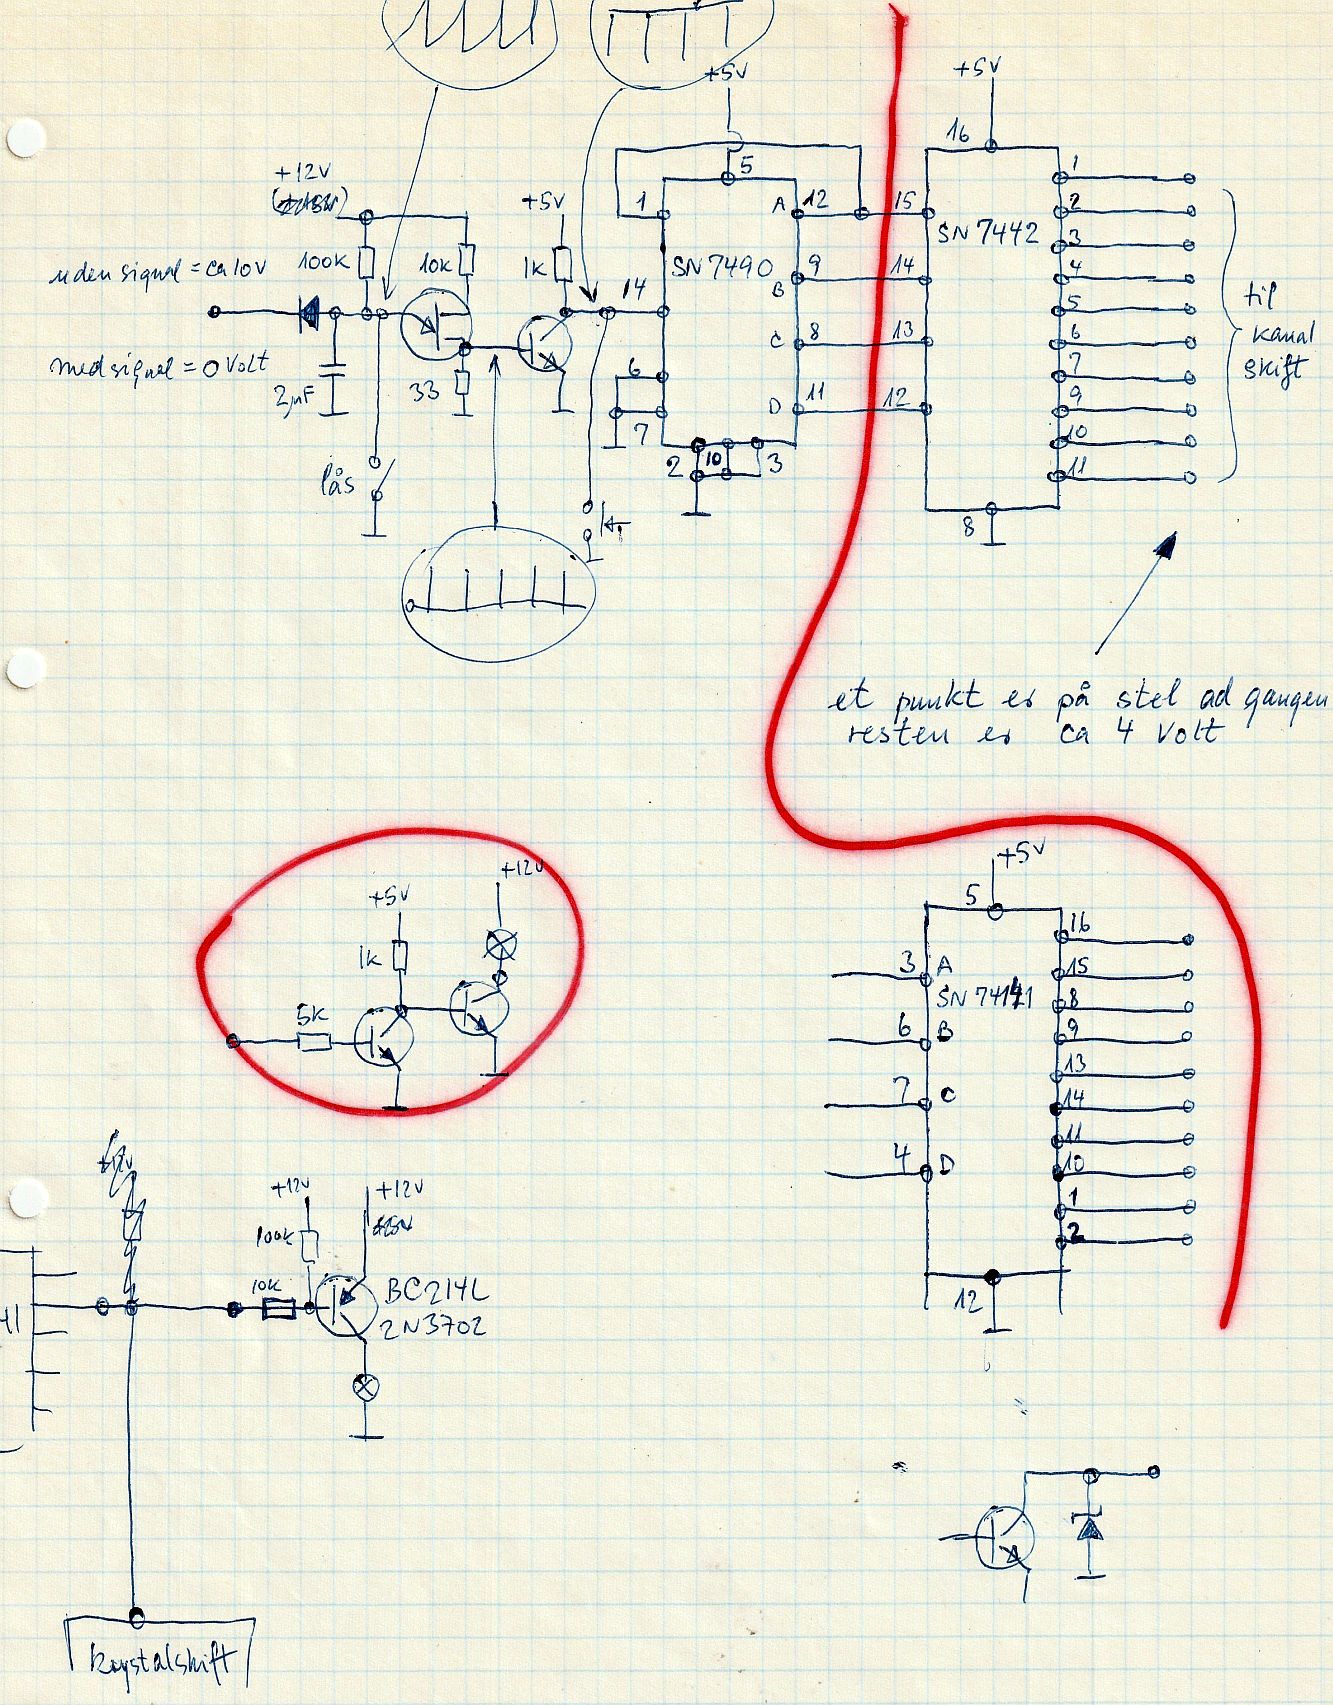 +5V
+5V
16
+12V
5
1
+5V
1
A
12
15
2
SN 7442
3
uden signal = ca 10V
100K
10K
1K
SN 7490
9
14
4
14
B
5
til
kanal
skift
med signal = 0 Volt
C
8
13
6
2µF
33
6
7
D
11
12
9
7
10
2
10
3
11
lås
8
et punkt er på stel ad gangen
resten er ca 4 Volt
+5V
+12V
5
+5V
16
1K
3
A
15
SN 74141
8
5K
6
B
9
13
7
C
14
11
4
D
10
+12V
+12V
1
100K
2
10K
BC214L
2N3702
12
41
krystalskift